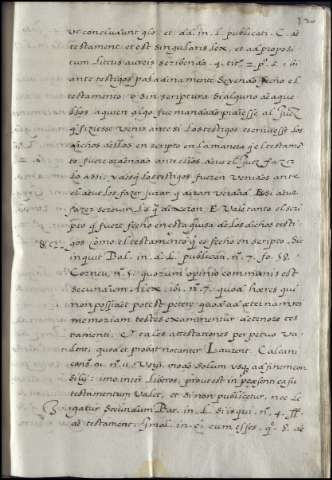 120
ut concludunt glo. et da. in. l. publicati. C. de
testament. et est singularis lex, et ad proposi
tum litteris aureis scribenda. 4. tit. 2. p. 6. ibi
ante testigos paladinamente deyendo fecho el
testamento, o sin scriptura si alguno de aque
llos a quien algo fue mandado pidiesse al Juez
q̃ fiziesse venir ante si los testigos e escriuiesse los
dichos dellos en escripto en la manera q̃ el testamẽ
to fuere ordenado ante ellos deue el Juez fazer
lo assi, y desq̃ los testigos fueren venidos ante
el deue los fazer jurar q̃ digan verdad. E si deue
fazer screuir lo q̃ dixeron. E Vale tanto el scri
pto q̃ fuere fecho en esta guisa de los dichos testi
gos como el testamento q̃ es fecho en scripto. Si
inquit Bal. in. d. l. publicati. n. 7. fo. 58.
Corneu. n. 5. quorum opinio communis est
secundum Alex. ibi. n. 7. quod hæres qui
non possidet potest petere quod ad æternam rei
memoriam testes examinentur de tenore tes
tamenti. Et tales attestationes perpetuo va
lent, quod et probat notanter Laurent. Calcani
cons. 61. n. 11. Vers. modo solum usq̃ ad finem con
silij: imo inter liberos, prout est in præsenti casu
testamentum valet, et si non publicetur, nec le
gatur secundum Bar. in. l. si is qui. n. 4. ff.
de testament. Imol. in. c. cum esses. n. 8. de